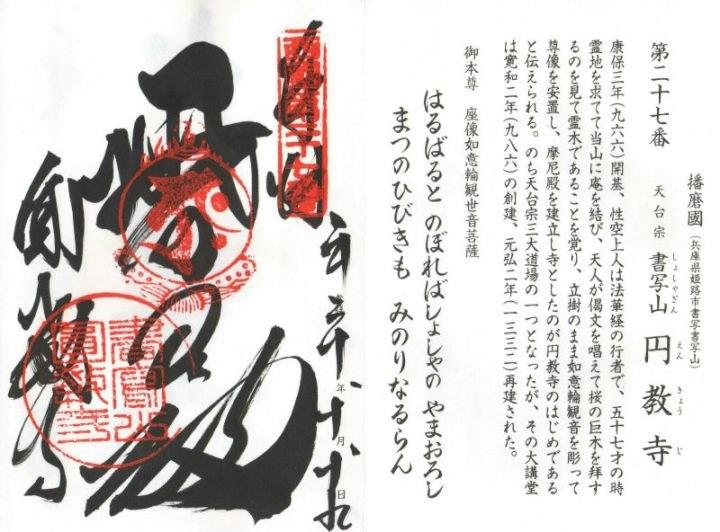 播磨國（兵庫県姫路市書写書写山）
第二十七番　天台宗　書写山　円教寺
しょしゃざん　えんきょうじ
康保三年（九六六）開基、性空上人は法華経の行者で、五十七才の時
霊地を求てて当山に庵を結び、天人が偈文を唱えて桜の巨木を拝す
るのを見て霊木であることを覚り、立樹のまま如意輪観音を彫って
尊像を安置し、摩尼殿を建立し寺としたのが円教寺のはじめである
と伝えられる。のち天台宗三大道場の一つとなったが、その大講堂
は寛和二年（九八六）の創建、元弘二年（一三三二）再建された。
御本尊　座像如意輪観世音菩薩
はるばると のぼればしょしゃの やまおろし
まつのひびきも みのりなるらん
奉拝
年　月　日
摩尼殿
圓教寺